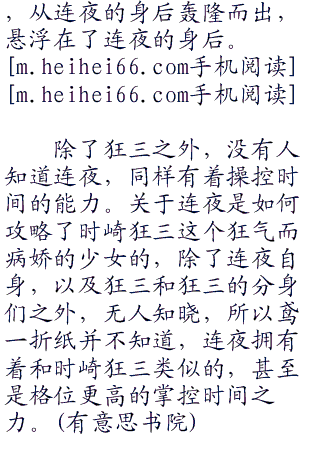 ，从连夜的身后轰隆而出，
悬浮在了连夜的身后。
[m.heihei66.com手机阅读]
[m.heihei66.com手机阅读]
除了狂三之外，没有人
知道连夜，同样有着操控时
间的能力。关于连夜是如何
攻略了时崎狂三这个狂气而
病娇的少女的，除了连夜自
身，以及狂三和狂三的分身
们之外，无人知晓，所以鸢
一折纸并不知道，连夜拥有
着和时崎狂三类似的，甚至
是格位更高的掌控时间之
力。(有意思书院)